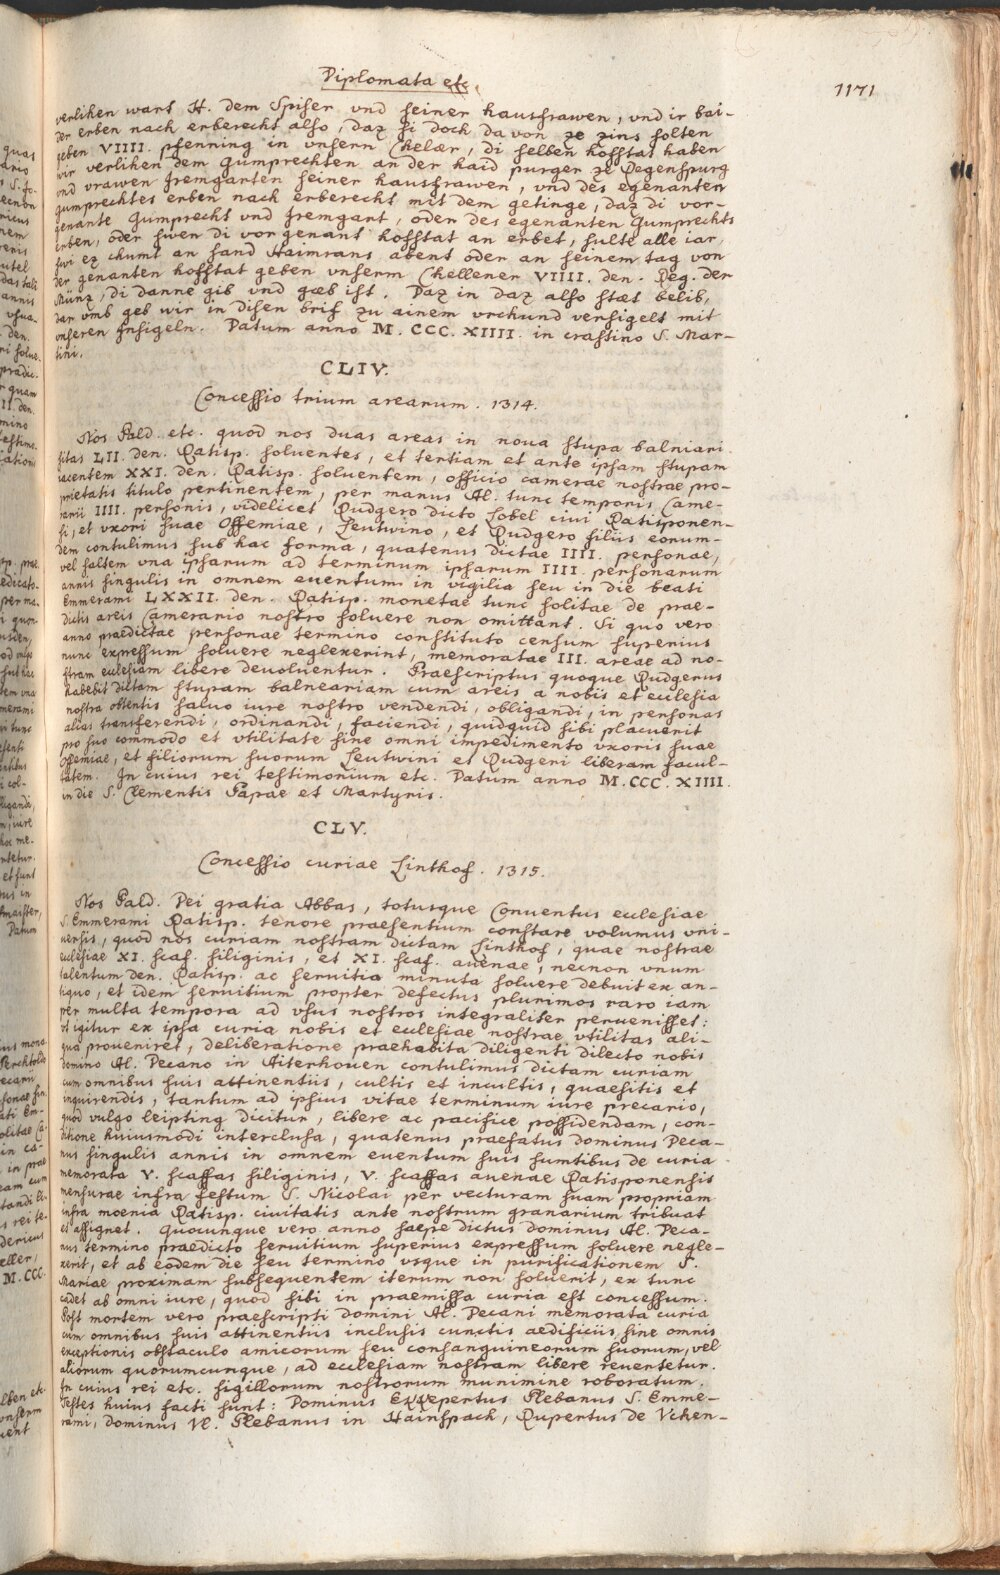 Diplomata etc.
1171
verlihen wart H. dem Spiser vnd seiner hausfrawen, vnd ir bai-
der erben nach erberecht also, daz si doch da von ze zins solten
geben VIIII. pfenning in vnsern Chelær, di selben hofstat haben
wir verlihen dem Gumprechten an der haid purger ze Regenspurg
vnd vrawen Jremgarten seiner hausfrawen, vnd des egenanten
Gumprechtes erben nach erberecht mit dem getinge, daz di vor-
genante Gumprecht vnd Jremgart, oder des egenanten Gumprechts
erben, oder swen di vorgenant hofstat an erbet, sulte alle iar,
swi ez chumt an sand Haimrans abent oder an seinem tag von
der genanten hofstat geben vnserm Chellener VIIII. den. Reg. der
Münz, di danne gib vnd gæb ist. Daz in daz also stæt belib,
dar vmb geb wir in disen brif zu ainem vrchund versigelt mit
vnseren Jnsigeln. Datum anno M. CCC. XIIII. in crastino S. Mar-
tini.
CLIV.
Concessio trium arearum. 1314.
Nos Bald. etc. quod nos duas areas in noua stupa balniari
sitas LII. den. Ratisp. soluentes, et tertiam et ante ipsam stupam
iacentem XXI. den. Ratisp. soluentem, officio camerae nostrae pro-
prietatis titulo pertinentem, per manus Al. tunc temporis Came-
rarii IIII. personis, videlicet Rudgero dicto Lobel ciui Ratisponen-
si, et vxori suae Offemiae, Leutwino, et Rudgero filiis eorum-
dem contulimus sub hac forma, quatenus dictae IIII. personae,
vel saltem vna ipsarum ad terminum ipsarum IIII. personarum
annis singulis in omnem euentum in vigilia seu in die beati
Emmerami LXXII. den. Ratisp. monetae tunc solitae de prae-
dictis areis Camerario nostro soluere non omittant. Si quo vero
anno praedictae personae termino constituto censum superius
nunc expressum soluere neglexerint, memoratae III. areae ad no-
stram ecclesiam libere deuoluentur. Praescriptus quoque Rudgerus
habebit dictam stupam balneariam cum areis a nobis et ecclesia
nostra obtentis saluo iure nostro vendendi, obligandi, in personas
alias transferendi, ordinandi, faciendi, quidquid sibi placuerit
pro suo commodo et vtilitate sine omni impedimento vxoris suae
Offemiae, et filiorum suorum Leutwini et Rudgeri liberam facul-
tatem. In cuius rei testimonium etc. Datum anno M. CCC. XIIII.
in die S. Clementis Papae et Martyris.
CLV.
Concessio curiae Linthof. 1315.
Nos Bald. Dei gratia Abbas, totusque Conuentus ecclesiae
S. Emmerami Ratisp. tenore praesentium constare volumus vni-
uersis, quod nos curiam nostram dictam Linthof, quae nostrae
ecclesiae XI. scaf. siliginis, et XI. scaf. auenae, necnon vnum
talentum den. Ratisp. ac seruitia minuta soluere debuit ex an-
tiquo, et idem seruitium propter defectus plurimos raro iam
per multa tempora ad vsus nostros integraliter peruenisset:
vt igitur ex ipsa curia nobis et ecclesiae nostrae vtilitas ali-
qua proueniret, deliberatione praehabita diligenti dilecto nobis
domino Al. Decano in Aiterhouen contulimus dictam curiam
cum omnibus suis attinentiis, cultis et incultis, quaesitis et
inquirendis, tantum ad ipsius vitae terminum iure precario,
quod vulgo leipting dicitur, libere ac pacifice possidendam, con-
ditione huiusmodi interclusa, quatenus praefatus dominus Deca-
nus singulis annis in omnem euentum suis sumtibus de curia
memorata V. scaffas siliginis, V. scaffas auenae Ratisponensis
mensurae infra festum S. Nicolai per vecturam suam propriam
infra moenia Ratisp. ciuitatis ante nostrum granarium tribuat
et assignet. Quocunque vero anno saepe dictus dominus Al. Deca-
nus termino praedicto seruitium superius expressum soluere negle-
xerit, et ab eodem die seu termino vsque in purificationem S.
Mariae proximam subsequentem iterum non soluerit, ex tunc
cadet ab omni iure, quod sibi in praemissa curia est concessum.
Post mortem vero praescripti domini Al. Decani memorata curia
cum omnibus suis attinentiis inclusis cunctis aedificiis sine omnis
exceptionis obstaculo amicorum seu consanguineorum suorum, vel
aliorum quorumcunque, ad ecclesiam nostram libere reuertetur.
In cuius rei etc. sigillorum nostrorum munimine roboratum.
Testes huius facti sunt: Dominus Ekkepertus Plebanus S. Emme-
rami, dominus Vl. Plebanus in Hainspach, Rupertus de Vchen-